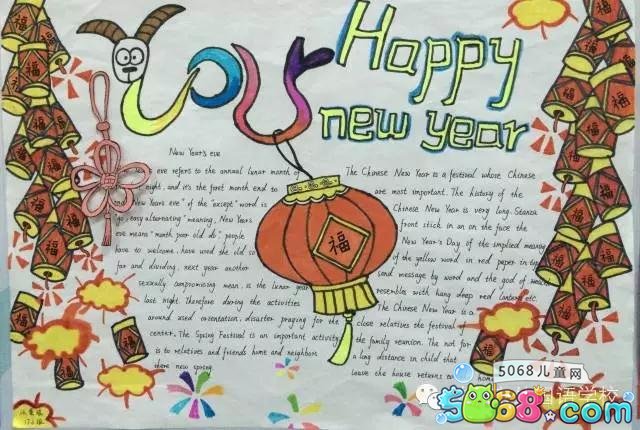 2015
Happy
new year
New Year's eve
eve refers to the annual lunar month of
night, and it's the first month end to
and New Year's eve" of the "except" word is
go, easy alternating" meaning, New Years
eve means "month poor old do", people
have to welcome, have used the old so
far and dividing, next year another
sexually compromising mean, is the lunar year
last night. Therefore during the activities
around used orientation, disaster praying for the
center. The Spring Festival is an important activity
is to relatives and friends home and neighbors
there new spring.
The Chinese New Year is a festival whose Chinese
are most important. The history of the
Chinese New Year is very long. Stanza
front stick in an on the face the
New Year's Day of the implied meaning
of the yellow word in red paper in
send message by word and the god of
resemble with hang deep red lantern etc.
The Chinese New Year is a
close relatives the festival
the family reunion. The not for
a long distance in child that
leave the house returns to home
福
福
福
福
5068儿童网
5068.com